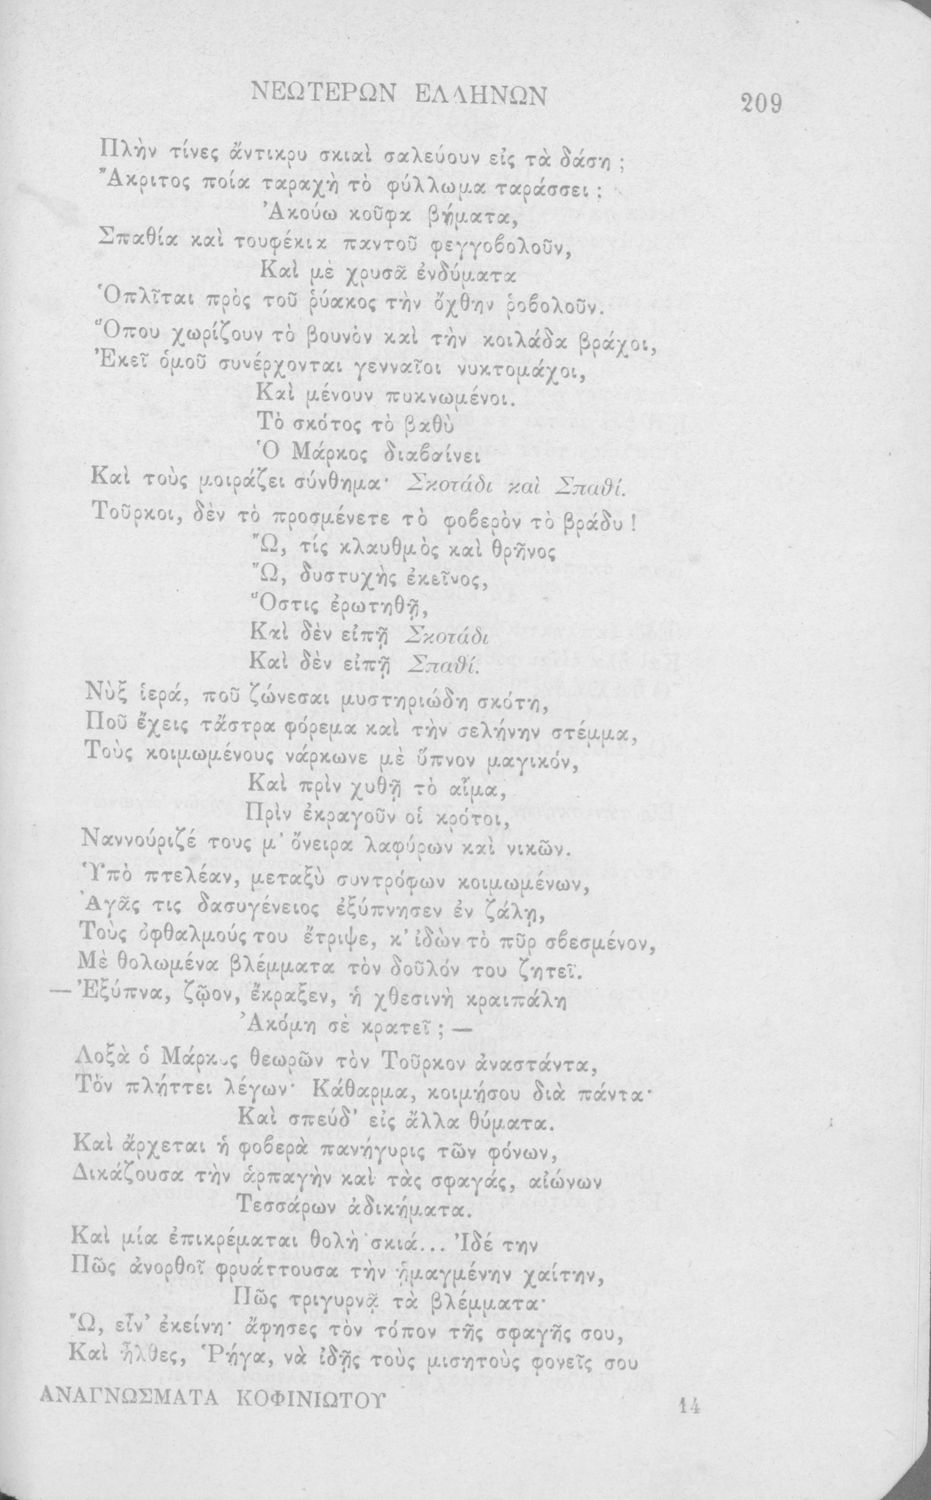 ΝΕΩΤΕΡΩΝ ΕΛΛΗΝΩΝ 209
Πλὴν τίνες ἄντικρυ σκιαὶ σαλεύουν εἰς τὰ δάση ;
Ἄκριτος ποία ταραχὴ τὸ φύλλωμα ταράσσει ;
Ἀκούω κοῦφα βήματα,
Σπαθία καὶ τουφέκια παντοῦ φεγγοβολοῦν,
Καὶ μὲ χρυσᾶ ἐνδύματα
Ὁπλῖται πρὸς τοῦ ῥύακος τὴν ὄχθην ῥοβολοῦν.
Ὅπου χωρίζουν τὸ βουνὸν καὶ τὴν κοιλάδα βράχοι,
Ἐκεῖ ὁμοῦ συνέρχονται γενναῖοι νυκτομάχοι,
Καὶ μένουν πυκνωμένοι.
Τὸ σκότος τὸ βαθὺ
Ὁ Μάρκος διαβαίνει
Καὶ τοὺς μοιράζει σύνθημα· Σκοτάδι καὶ Σπαθί.
Τοῦρκοι, δὲν τὸ προσμένετε τὸ φοβερὸν τὸ βράδυ !
Ὢ, τίς κλαυθμὸς καὶ θρῆνος
Ὢ, δυστυχὴς ἐκεῖνος,
Ὅστις ἐρωτηθῇ,
Καὶ δὲν εἰπῇ Σκοτάδι
Καὶ δὲν εἰπῇ Σπαθί.
Νὺξ ἱερά, ποῦ ζώνεσαι μυστηριώδη σκότη,
Ποῦ ἔχεις τἄστρα φόρεμα καὶ τὴν σελήνην στέμμα,
Τοὺς κοιμωμένους νάρκωνε μὲ ὕπνον μαγικόν,
Καὶ πρὶν χυθῇ τὸ αἷμα,
Πρὶν ἐκραγοῦν οἱ κρότοι,
Ναννούριζέ τους μ᾿ ὄνειρα λαφύρων καὶ νικῶν.
Ὑπὸ πτελέαν, μεταξὺ συντρόφων κοιμωμένων,
Ἀγᾶς τις δασυγένειος ἐξύπνησεν ἐν ζάλῃ,
Τοὺς ὀφθαλμούς του ἔτριψε, κ᾿ ἰδὼν τὸ πῦρ σβεσμένον,
Μὲ θολωμένα βλέμματα τὸν δοῦλόν του ζητεῖ.
— Ἐξύπνα, ζῷον, ἔκραξεν, ἡ χθεσινὴ κραιπάλη
Ἀκόμη σὲ κρατεῖ ; —
Λοξὰ ὁ Μάρκος θεωρῶν τὸν Τοῦρκον ἀναστάντα,
Τὸν πλήττει λέγων· Κάθαρμα, κοιμήσου διὰ πάντα·
Καὶ σπεύδ᾿ εἰς ἄλλα θύματα.
Καὶ ἄρχεται ἡ φοβερὰ πανήγυρις τῶν φόνων,
Δικάζουσα τὴν ἁρπαγὴν καὶ τὰς σφαγάς, αἰώνων
Τεσσάρων ἀδικήματα.
Καὶ μία ἐπικρέμαται θολὴ σκιά... Ἰδέ την
Πῶς ἀνορθοῖ φρυάττουσα τὴν ᾑμαγμένην χαίτην,
Πῶς τριγυρνᾷ τὰ βλέμματα·
Ὢ, εἶν᾿ ἐκείνη· ἄφησες τὸν τόπον τῆς σφαγῆς σου,
Καὶ ἦλθες, Ῥήγα, νὰ ἰδῇς τοὺς μισητοὺς φονεῖς σου
ΑΝΑΓΝΩΣΜΑΤΑ ΚΟΦΙΝΙΩΤΟΥ 14